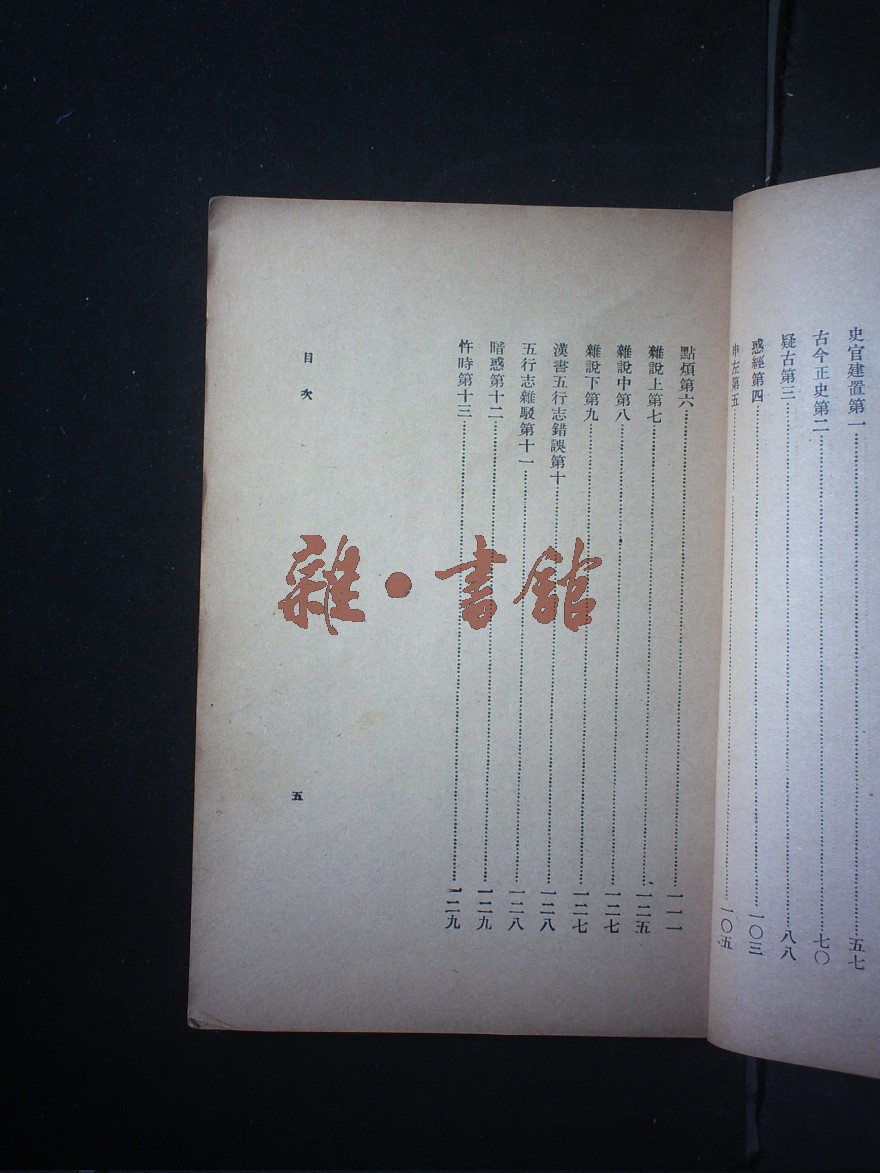 史官建置第一……五七
古今正史第二……七〇
疑古第三……八八
惑經第四……一〇三
申左第五……一〇五
點煩第六……一一一
雜說上第七……一二五
雜說中第八……一二七
雜說下第九……一二七
漢書五行志錯誤第十……一二八
五行志雜駁第十一……一二八
暗惑第十二……一二九
忤時第十三……一二九
目次
五
雜·書館